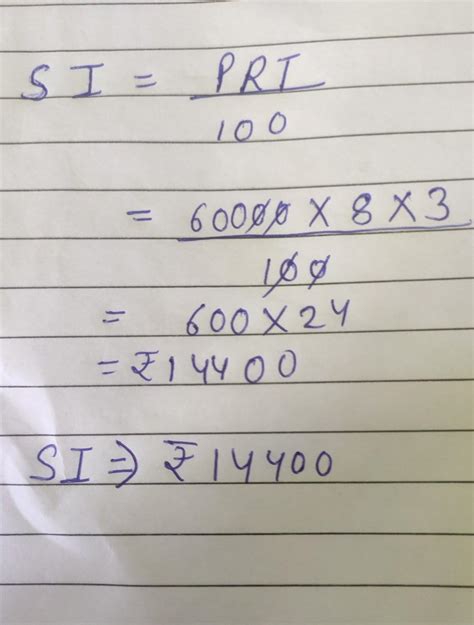 SI = PRT
100
= 60000 X 8 X 3
100
= 600 X 24
= ₹14400
SI ⇒ ₹14400